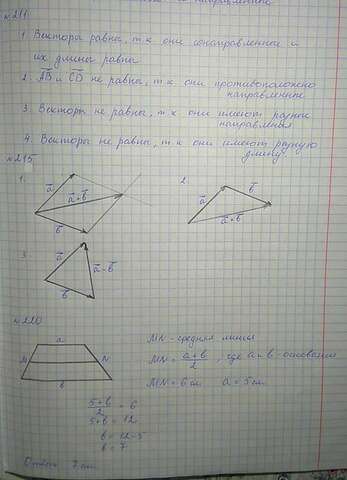 и направленные
№211
1. Векторы равны, т.к они сонаправленные и
их длины равны
2. AB и CD не равны, т.к. они противоположно
направленные
3. Векторы не равны, т.к они имеют разные
направления
4. Векторы не равны, т.к они имеют разную
длину.
№215
1.
2.
a
a+b
b
a
b
a+b
3.
a
a-b
b
№220
a
M
N
b
MN - средняя линия
MN = a+b/2, где a и b - основания
MN = 6 см a = 5 см
5+b/2 = 6
5+b = 12
b = 12-5
b = 7
Ответ: 7 см